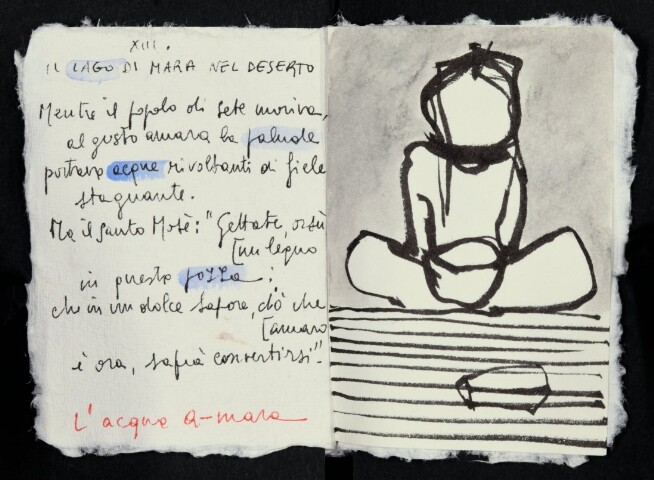 XIII.
IL LAGO DI MARA NEL DESERTO
Mentre il popolo di sete moriva,
al gusto amara la palude
portava acque rivoltanti di fiele
stagnante.
Ma il santo Mosè: "Gettate, orsù
[un legno
in questa pozza;
che in un dolce sapore, ciò che
[amaro
è ora, saprà convertirsi".
L'acqua a-mara